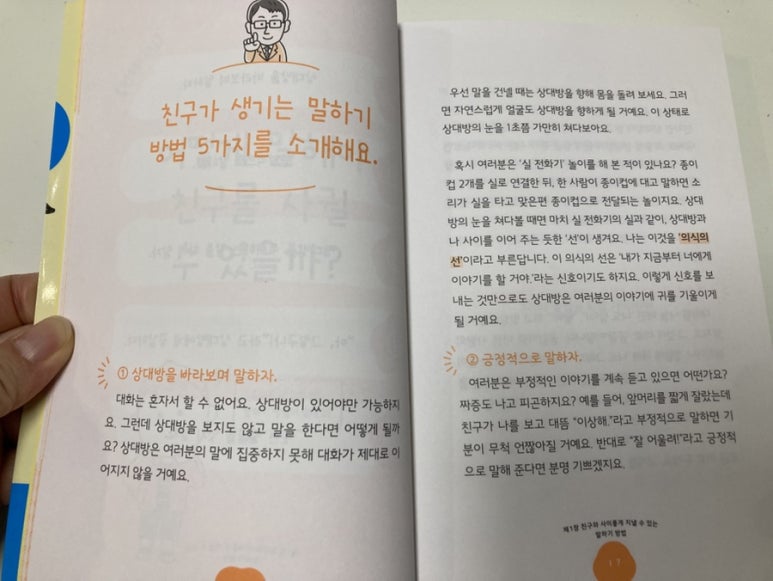 친구가 생기는 말하기
방법 5가지를 소개해요.
① 상대방을 바라보며 말하자.
대화는 혼자서 할 수 없어요. 상대방이 있어야만 가능하지
요. 그런데 상대방을 보지도 않고 말을 한다면 어떻게 될까
요? 상대방은 여러분의 말에 집중하지 못해 대화가 제대로 이
어지지 않을 거예요.
우선 말을 건넬 때는 상대방을 향해 몸을 돌려 보세요. 그러
면 자연스럽게 얼굴도 상대방을 향하게 될 거예요. 이 상태로
상대방의 눈을 1초쯤 가만히 쳐다보아요.
혹시 여러분은 '실 전화기' 놀이를 해 본 적이 있나요? 종이
컵 2개를 실로 연결한 뒤, 한 사람이 종이컵에 대고 말하면 소
리가 실을 타고 맞은편 종이컵으로 전달되는 놀이지요. 상대
방의 눈을 쳐다볼 때면 마치 실 전화기의 실과 같이, 상대방과
나 사이를 이어 주는 듯한 '선'이 생겨요. 나는 이것을 '의식의
선'이라고 부른답니다. 이 의식의 선은 '내가 지금부터 너에게
이야기를 할 거야.'라는 신호이기도 하지요. 이렇게 신호를 보
내는 것만으로도 상대방은 여러분의 이야기에 귀를 기울이게
될 거예요.
② 긍정적으로 말하자.
여러분은 부정적인 이야기를 계속 듣고 있으면 어떤가요?
짜증도 나고 피곤하지요? 예를 들어, 앞머리를 짧게 잘랐는데
친구가 나를 보고 대뜸 "이상해."라고 부정적으로 말하면 기
분이 무척 언짢아질 거예요. 반대로 "잘 어울려!"라고 긍정적
으로 말해 준다면 분명 기쁘겠지요.
제1장 친구와 사이좋게 지낼 수 있는
말하기 방법
17